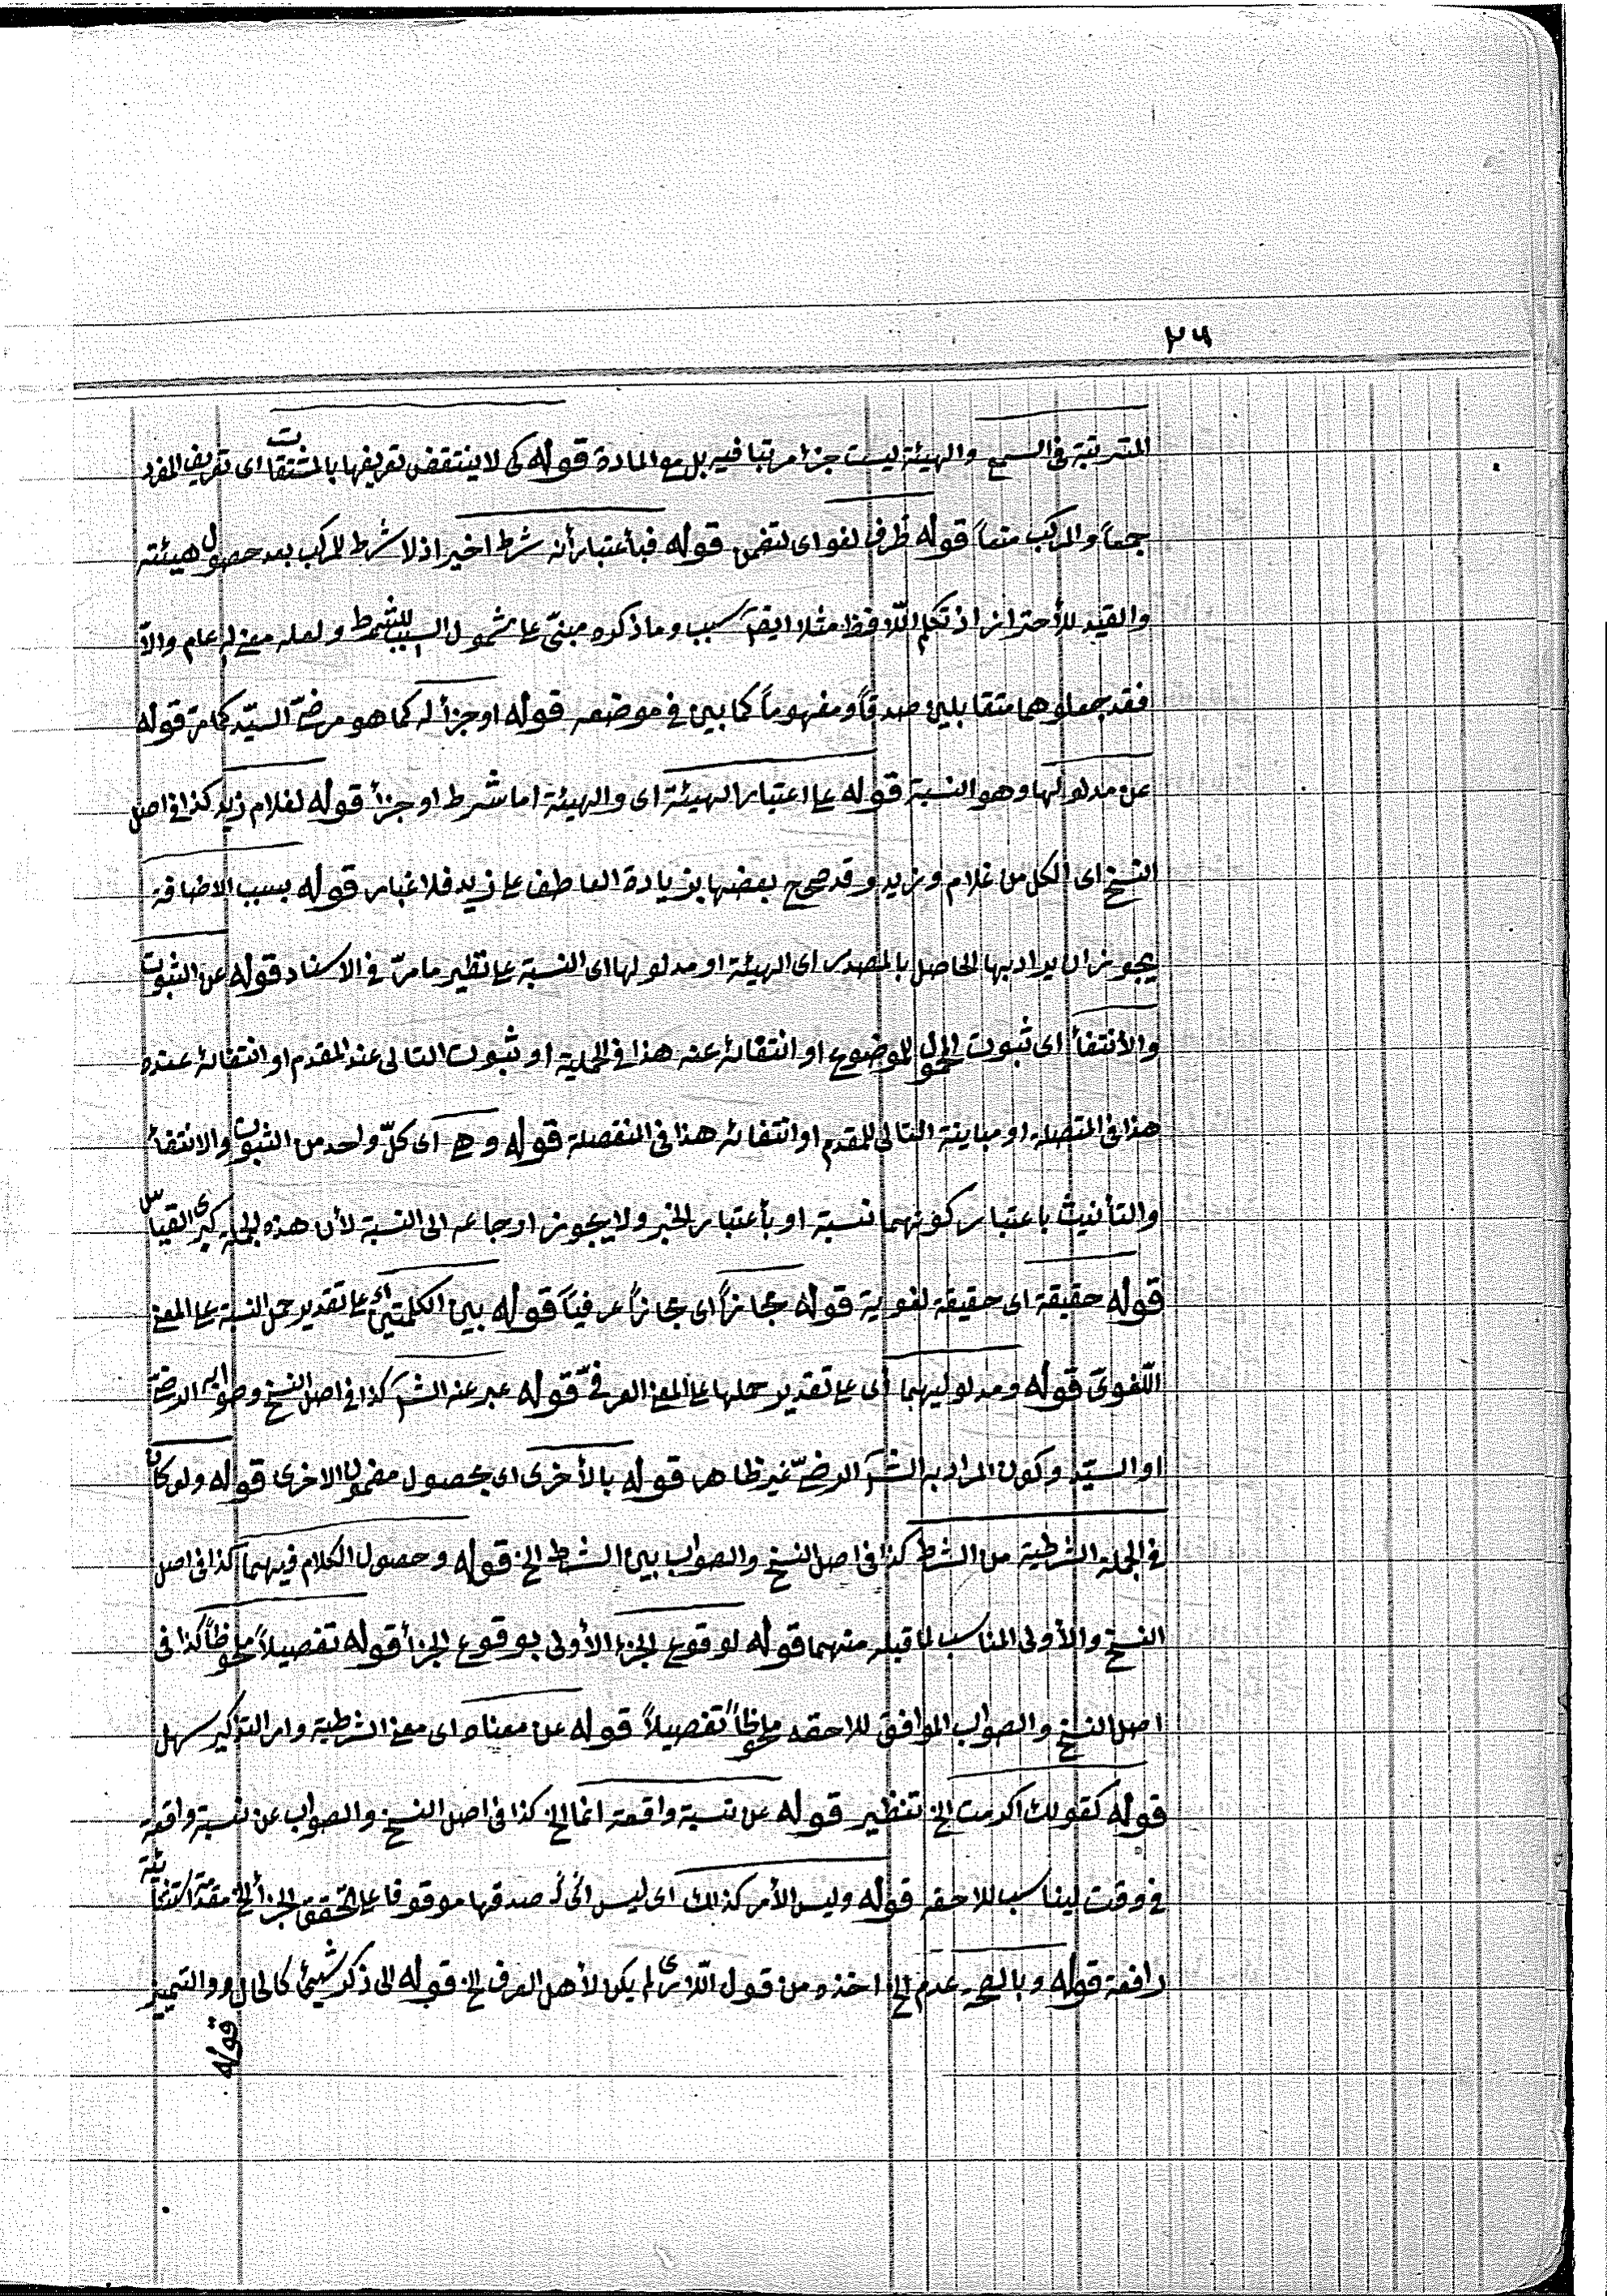 ٢٦
المترتبة فى السمع والهيئة ليست جزأ مرتبا فيه بل مع المادة قوله كى لا ينتقض تعريفها بالمشتقات اى تعريف المفرد
جمعاً والمركب منعاً قوله ظرف لغو اى لتضمن قوله فبأعتبار أنه شرط اخير اذ لا شرط للمركب بعد حصول هيئته
والقيد للأحتراز اذ تكلم اللّافظ مثلا ايضم سبب وما ذكره مبنىّ على شمول السبب للشرط ولعله معنى له عام والاّ
فقد جعلوهما متقابلين صدقاً ومفهوماً كما بين فى موضعه قوله او جزأ له كما هو مرضىّ السيّد كما مرّ قوله
عن مدلولها وهو النسبة قوله على اعتبار الهيئة اى والهيئة اما شرط او جزأ قوله لغلام زيد كذا فى اصل
النسخ اى الكل من غلام وزيد وقد صحح بعضها بزيادة العاطف على زيد فلا غبار قوله بسبب الاضافة
يجوز ان يراد بها الحاصل بالمصدر اى الهيئة او مدلولها اى النسبة على نظير ما مرّ فى الاسناد قوله عن الثبوت
والأنتفأ اى ثبوت المحمول للموضوع او انتفائه عنه هذا فى الحملية او ثبوت التالى عند المقدم او انتفائه عنده
هذا فى المتصلة او مباينة التالى للمقدم او انتفائه هذا فى المنفصلة قوله وهى اى كلّ واحد من الثبوت والانتفأ
والتأنيث باعتبار كونهما نسبة او بأعتبار الخبر ولا يجوز ارجاعه الى النسبة لأن هذه الجملة كبرى القياس
قوله حقيقة اى حقيقة لغوية قوله مجازاً اى مجازاً عرفياً قوله بين الكلمتين اى على تقدير حمل النسبة على المعنى
اللّغوىّ قوله ومدلوليهما أى على تقدير حملها على المعنى العرفىّ قوله عبر عنه الشم كذا فى اصل النسخ وصوابه الرضىّ
او السيّد وكون المراد به الشم الرضىّ غير ظاهر قوله بالأخرى اى بحصول مضمون الاخرى قوله ولو كان
فى الجملة الشرطية من الشرط كذا فى اصل النسخ والصواب بين الشرط الخ قوله وحصول الكلام فيهما كذا فى اصل
النسخ والأولى المناسب لما قبله منهما قوله لوقوع الجزاء الأولى بوقوع الجزأ قوله تفصيلاً ملحوظاً كذا فى
اصل النسخ والصواب الموافق للاحقه ملحوظاً تفصيلاً قوله عن معناه اى معنى الشرطية وامر التذكير سهل
قوله كقولك اكرمت الخ تنظير قوله عن نسبة واقعة انما الخ كذا فى اصل النسخ والصواب عن نسبة واقعة
فى وقت ليناسب للاحقه قوله وليس الأمر كذلك اى ليس صدقها موقوفا على تحقق الجزأ الخ مقدّمة استثنائية
رافعة قوله وبالجملة عدم الخ اخذه من قول اللّارى لم يكن لأهل العرف الخ قوله الى ذكر شيئ كالحال والتمييز
قوله